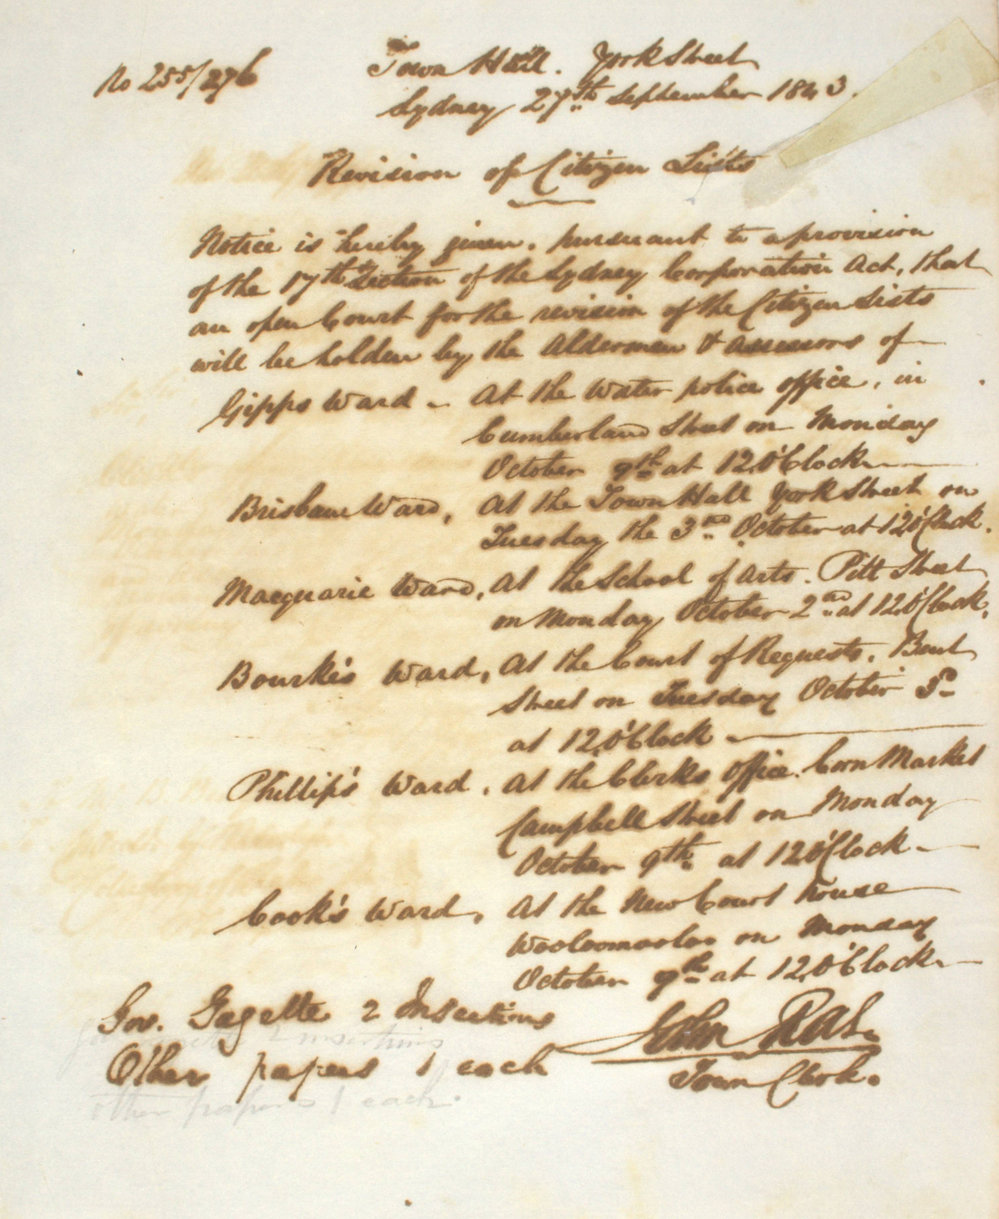 No 255/276
Town Hall. York Street
Sydney 27th September 1843.
Revision of Citizen Lists
Notice is hereby given, pursuant to a provision
of the 17th Section of the Sydney Corporation Act, that
an open Court for the revision of the Citizen Lists
will be holden by the Aldermen & assessors of
Gipps Ward - At the Water police office, in
Cumberland Street on Monday
October 9th at 12 O'Clock
Brisbane Ward, At the Town Hall York Street on
Tuesday the 3rd October at 12 O'Clock.
Macquarie Ward, At the School of Arts. Pitt Street
on Monday October 2nd at 12 O'Clock.
Bourke's Ward, At the Court of Requests, Bent
Street on Tuesday October 3rd
at 12 O'Clock
Phillip's Ward, At the Clerks Office. Corn Market
Campbell Street on Monday
October 9th at 12 O'Clock
Cook's Ward, At the New Court House
Wooloomooloo on Monday
October 9th at 12 O'Clock
Gov. Gazette 2 Insertions
2 insertions
Other papers 1 each
other papers 1 each.
John Rae
Town Clerk.